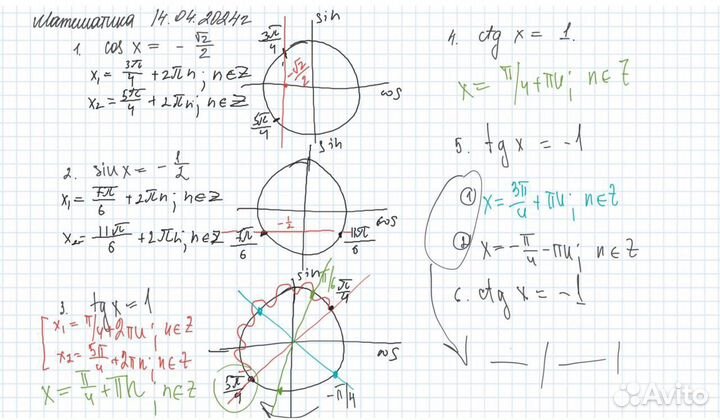 Математика 14.04.2024г
1. cos x = - √2/2
x₁ = 3π/4 + 2πn; n∈Z
x₂ = 5π/4 + 2πn; n∈Z
sin
3π/4
-√2/2
cos
5π/4
2. sin x = - 1/2
x₁ = 7π/6 + 2πn; n∈Z
x₂ = 11π/6 + 2πn; n∈Z
sin
-1/2
cos
7π/6
11π/6
3. tg x = 1
x₁ = π/4 + 2πn; n∈Z
x₂ = 5π/4 + 2πn; n∈Z
x = π/4 + πn; n∈Z
sin
π/6
π/4
cos
5π/4
-π/4
4. ctg x = 1.
x = π/4 + πn; n∈Z
5. tg x = -1
① x = 3π/4 + πn; n∈Z
② x = -π/4 - πn; n∈Z
6. ctg x = -1
Avito